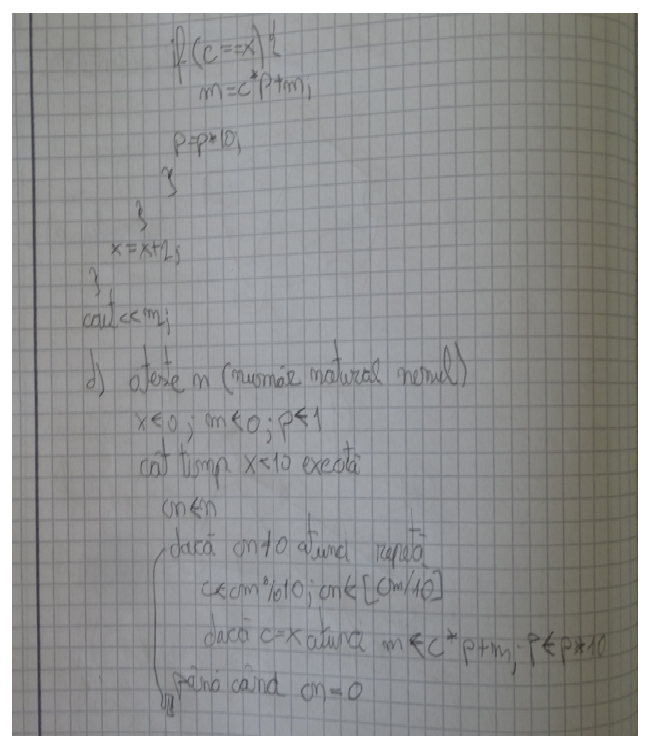 if (c==x) {
m=c*p+m;
p=p*10;
}
}
x=x+1;
}
cout<<m;
d) citește n (număr natural nenul)
x←0; m←0; p←1
cât timp x<10 execută
cn←n
dacă cn≠0 atunci repetă
c←cn%10; cn←[cn/10]
dacă c=x atunci m←c*p+m; p←p*10
până când cn=0